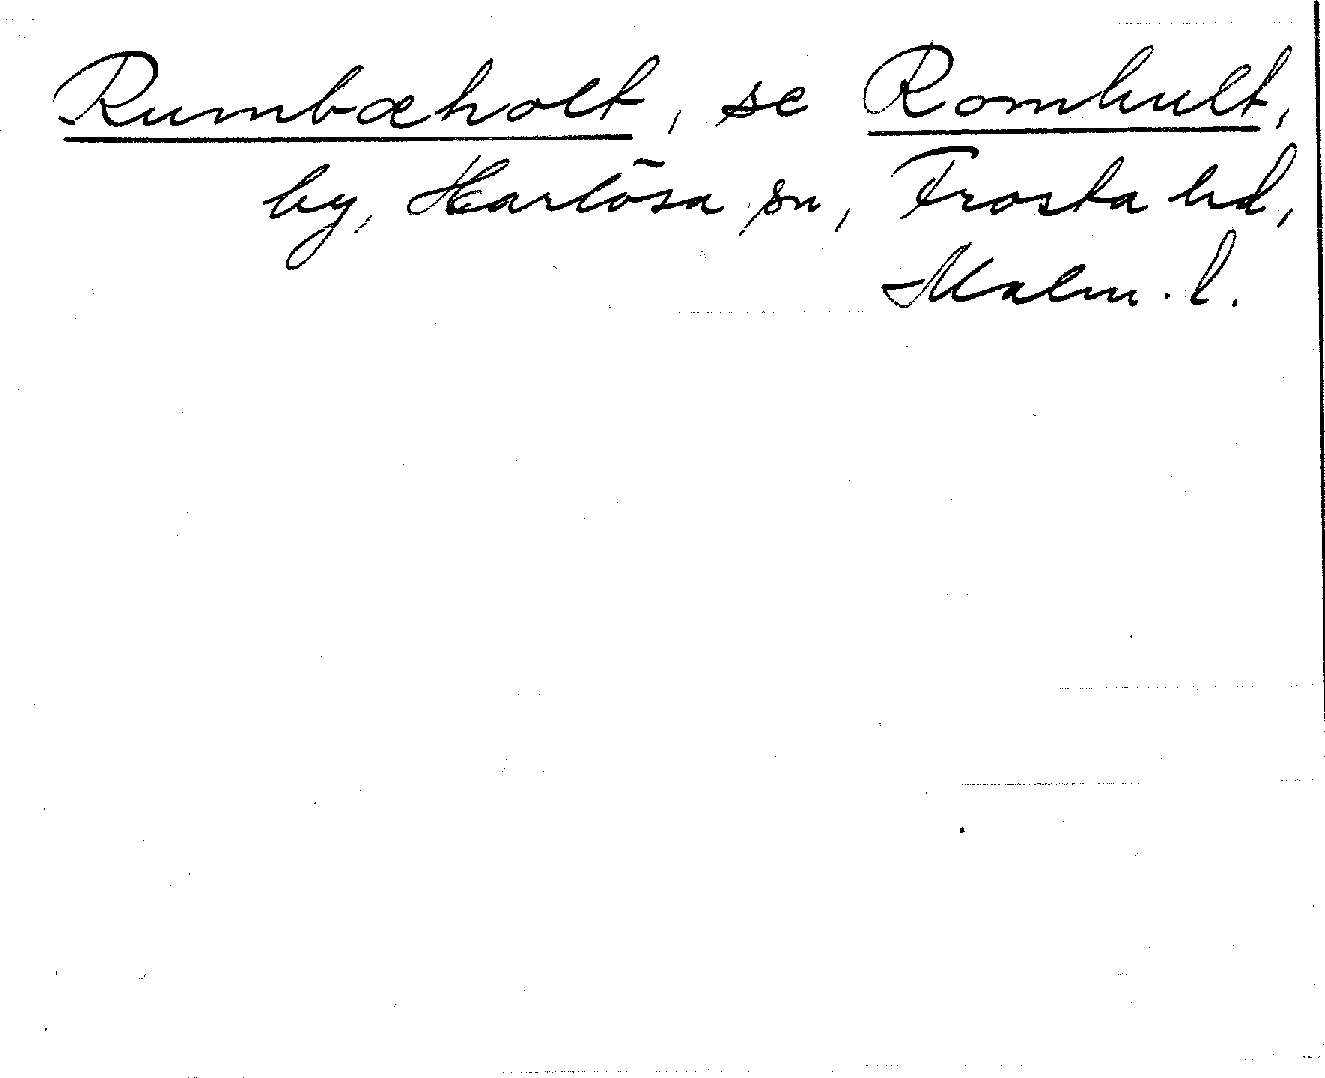 Rumbæholt, se Romhult,
by, Harlösa sn, Frosta hd,
Malm. l.